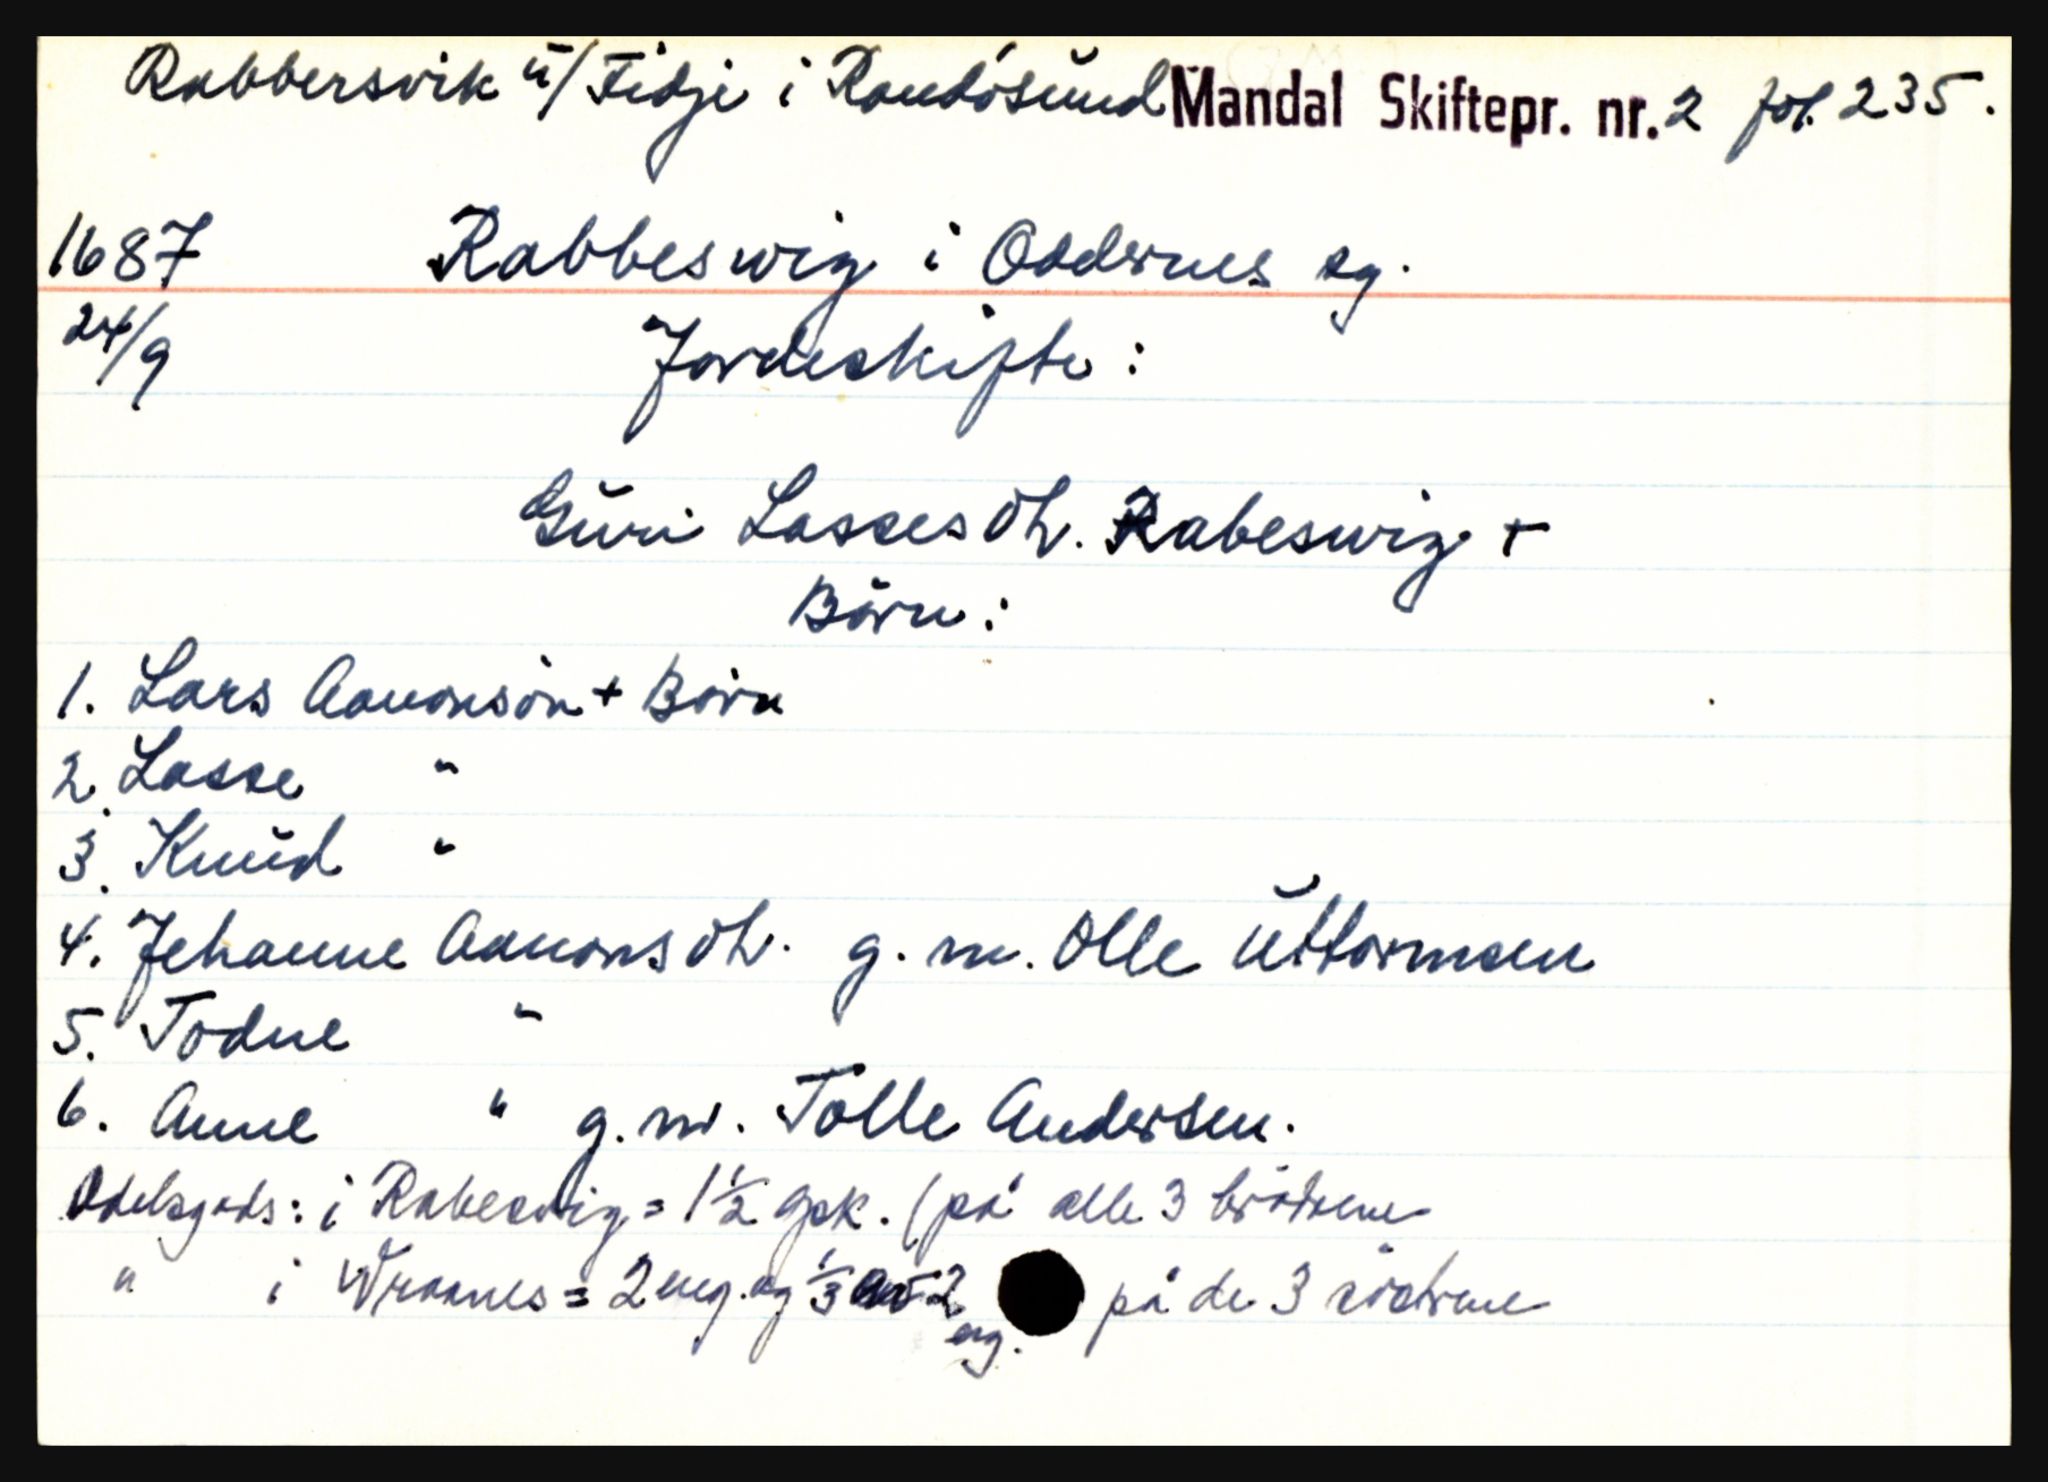 Rabbersvik u/ Fidje i Randøsund Mandal Skiftepr. nr. 2 fol. 235.
1687 Rabbeswig i Oddernes sg.
24/9 Jordeskifte:
Guri Lassesdt. Rabeswig +
Børn:
1. Lars Aanonsøn + Børn
2. Lasse "
3. Knud "
4. Jehanne Aanonsdt. g. m. Olle Uttormsen
5. Todne "
6. Anne " g. m. Tolle Andersen.
Odelsgods: i Rabeswig = 1½ gsk. (på alle 3 brødrene
" i Wraanes = 2 eng. og ⅓ 2 på de 3 søstrene
eng.